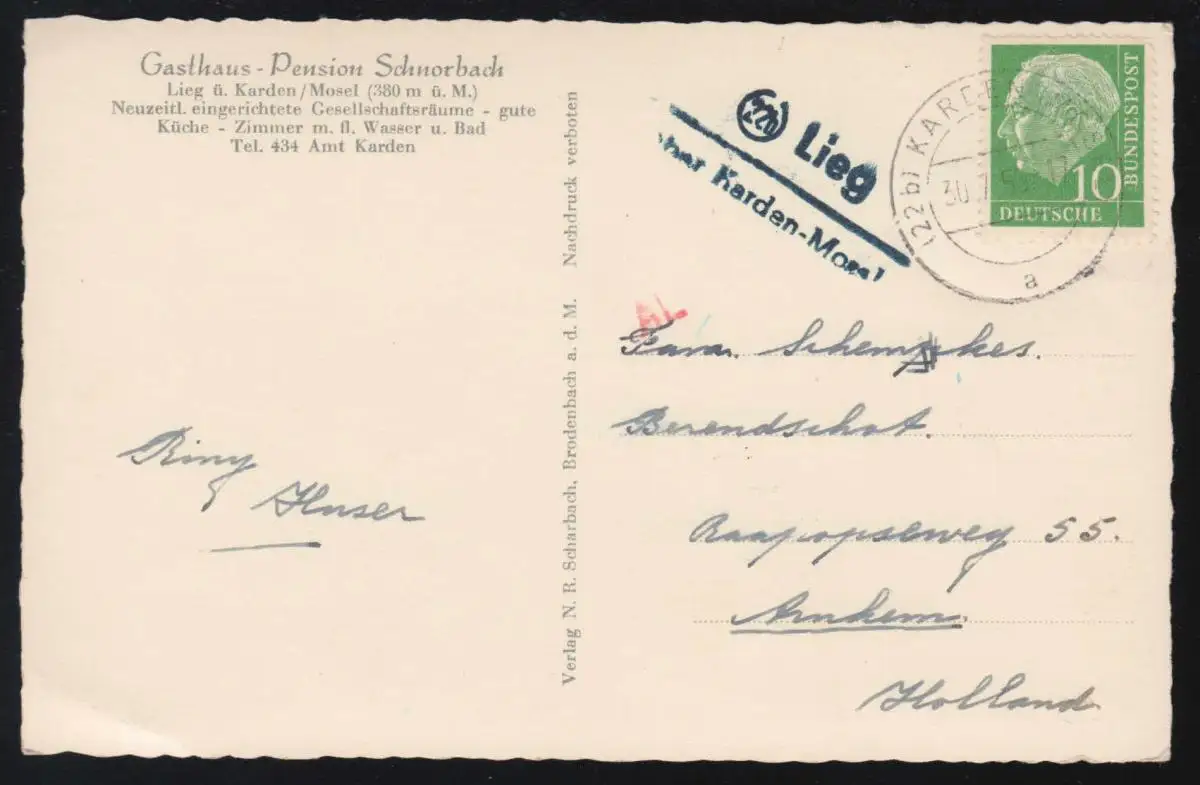 Gasthaus - Pension Schnorbach
Lieg ü. Karden/Mosel (380 m ü. M.)
Neuzeitl. eingerichtete Gesellschaftsräume - gute
Küche - Zimmer m. fl. Wasser u. Bad
Tel. 434 Amt Karden
Riny
Huser
Verlag N. R. Scharbach, Brodenbach a. d. M. Nachdruck verboten
(22b) Lieg
über Karden-Mosel
(22b) KARDEN
30.7.5
a
BUNDESPOST
10
DEUTSCHE
Fam. Schemkes.
Berendschot.
Raapopseweg 55.
Arnhem.
Holland